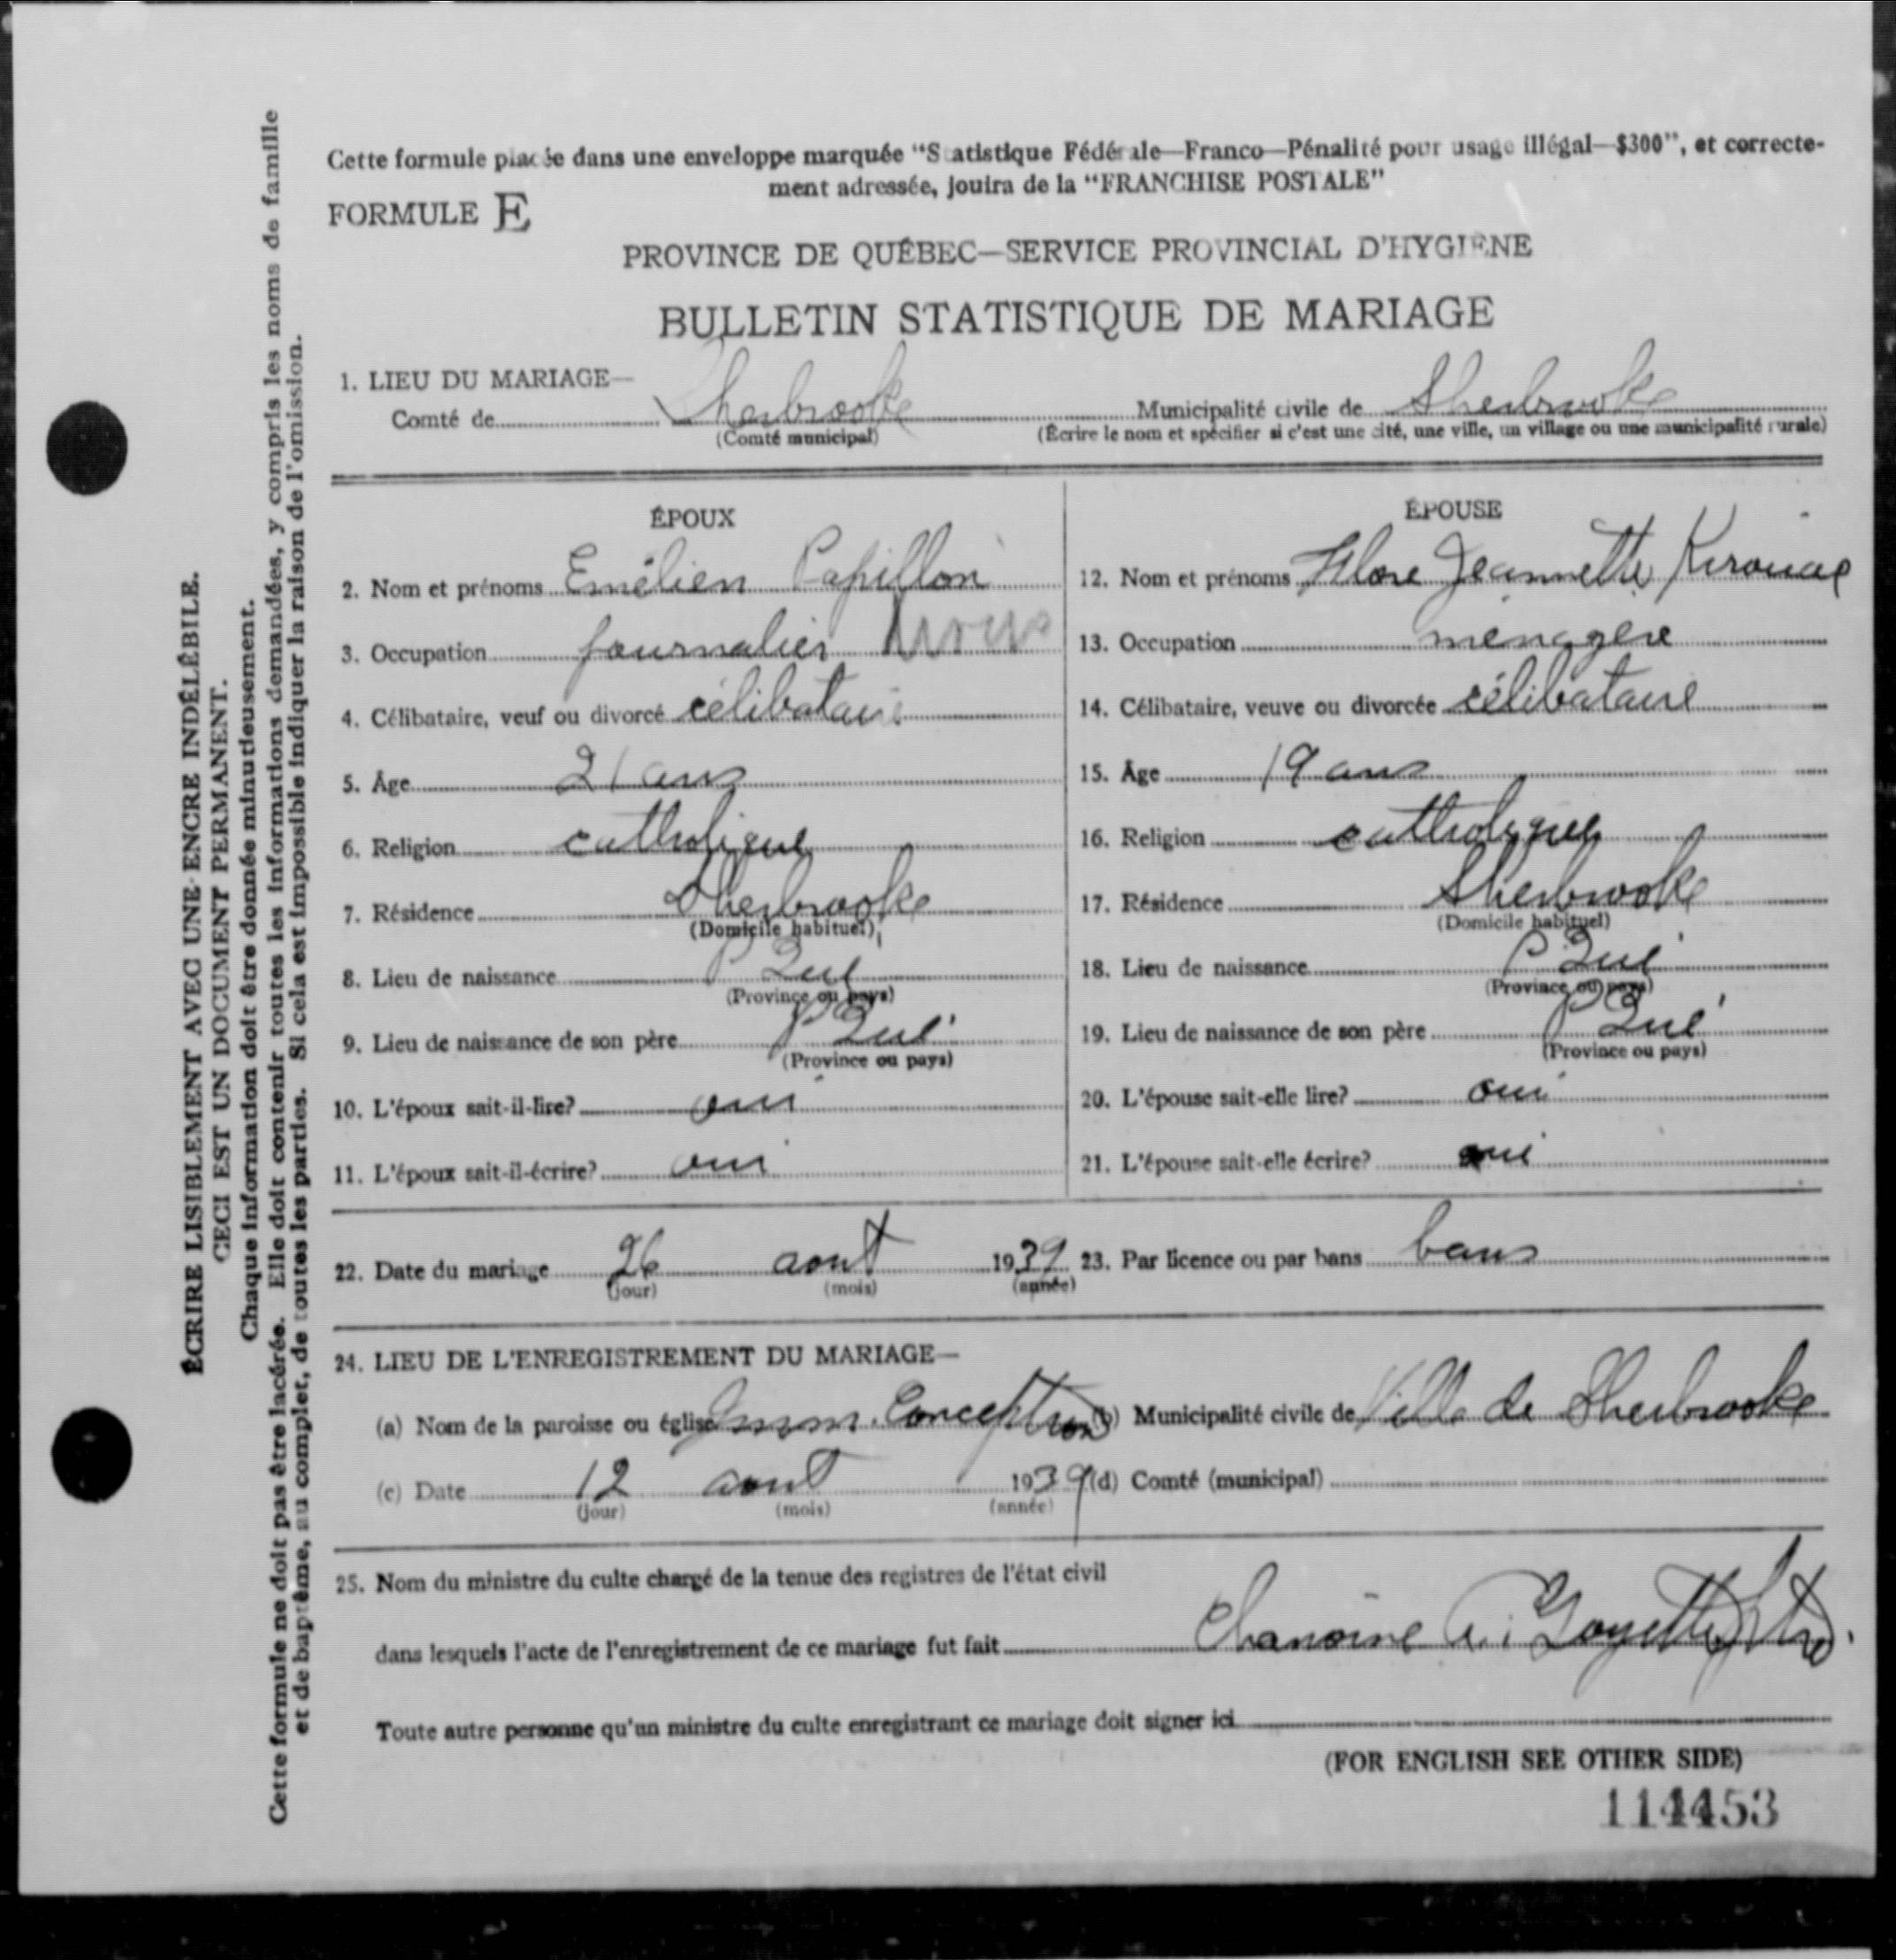 Cette formule placée dans une enveloppe marquée “Statistique Fédérale—Franco—Pénalité pour usage illégal—$300”, et correcte-
ment adressée, jouira de la “FRANCHISE POSTALE”
FORMULE E
PROVINCE DE QUÉBEC—SERVICE PROVINCIAL D'HYGIÈNE
BULLETIN STATISTIQUE DE MARIAGE
1. LIEU DU MARIAGE—
Comté de Sherbrooke Municipalité civile de Sherbrooke
(Comté municipal) (Écrire le nom et spécifier si c'est une cité, une ville, un village ou une municipalité rurale)
ÉPOUX
2. Nom et prénoms Emélien Papillon
3. Occupation journalier
4. Célibataire, veuf ou divorcé célibataire
5. Âge 21 ans
6. Religion catholique
7. Résidence Sherbrooke
(Domicile habituel)
8. Lieu de naissance P Qué
(Province ou pays)
9. Lieu de naissance de son père P Qué
(Province ou pays)
10. L'époux sait-il-lire? oui
11. L'époux sait-il-écrire? oui
ÉPOUSE
12. Nom et prénoms Flore Jeannette Kirouac
13. Occupation ménagère
14. Célibataire, veuve ou divorcée célibataire
15. Âge 19 ans
16. Religion catholique
17. Résidence Sherbrooke
(Domicile habituel)
18. Lieu de naissance P Qué
(Province ou pays)
19. Lieu de naissance de son père P Qué
(Province ou pays)
20. L'épouse sait-elle lire? oui
21. L'épouse sait-elle écrire? oui
22. Date du mariage 26 aout 1939 23. Par licence ou par bans bans
(jour) (mois) (année)
24. LIEU DE L'ENREGISTREMENT DU MARIAGE—
(a) Nom de la paroisse ou église Imm. Conception (b) Municipalité civile de Ville de Sherbrooke
(c) Date 12 aout 1939 (d) Comté (municipal)
(jour) (mois) (année)
25. Nom du ministre du culte chargé de la tenue des registres de l'état civil
dans lesquels l'acte de l'enregistrement de ce mariage fut fait Chanoine A. Goyette Ptre.
Toute autre personne qu'un ministre du culte enregistrant ce mariage doit signer ici
(FOR ENGLISH SEE OTHER SIDE)
114453
ÉCRIRE LISIBLEMENT AVEC UNE ENCRE INDÉLÉBILE.
CECI EST UN DOCUMENT PERMANENT.
Chaque information doit être donnée minutieusement.
Cette formule ne doit pas être lacérée. Elle doit contenir toutes les informations demandées, y compris les noms de famille
et de baptême, au complet, de toutes les parties. Si cela est impossible indiquer la raison de l'omission.